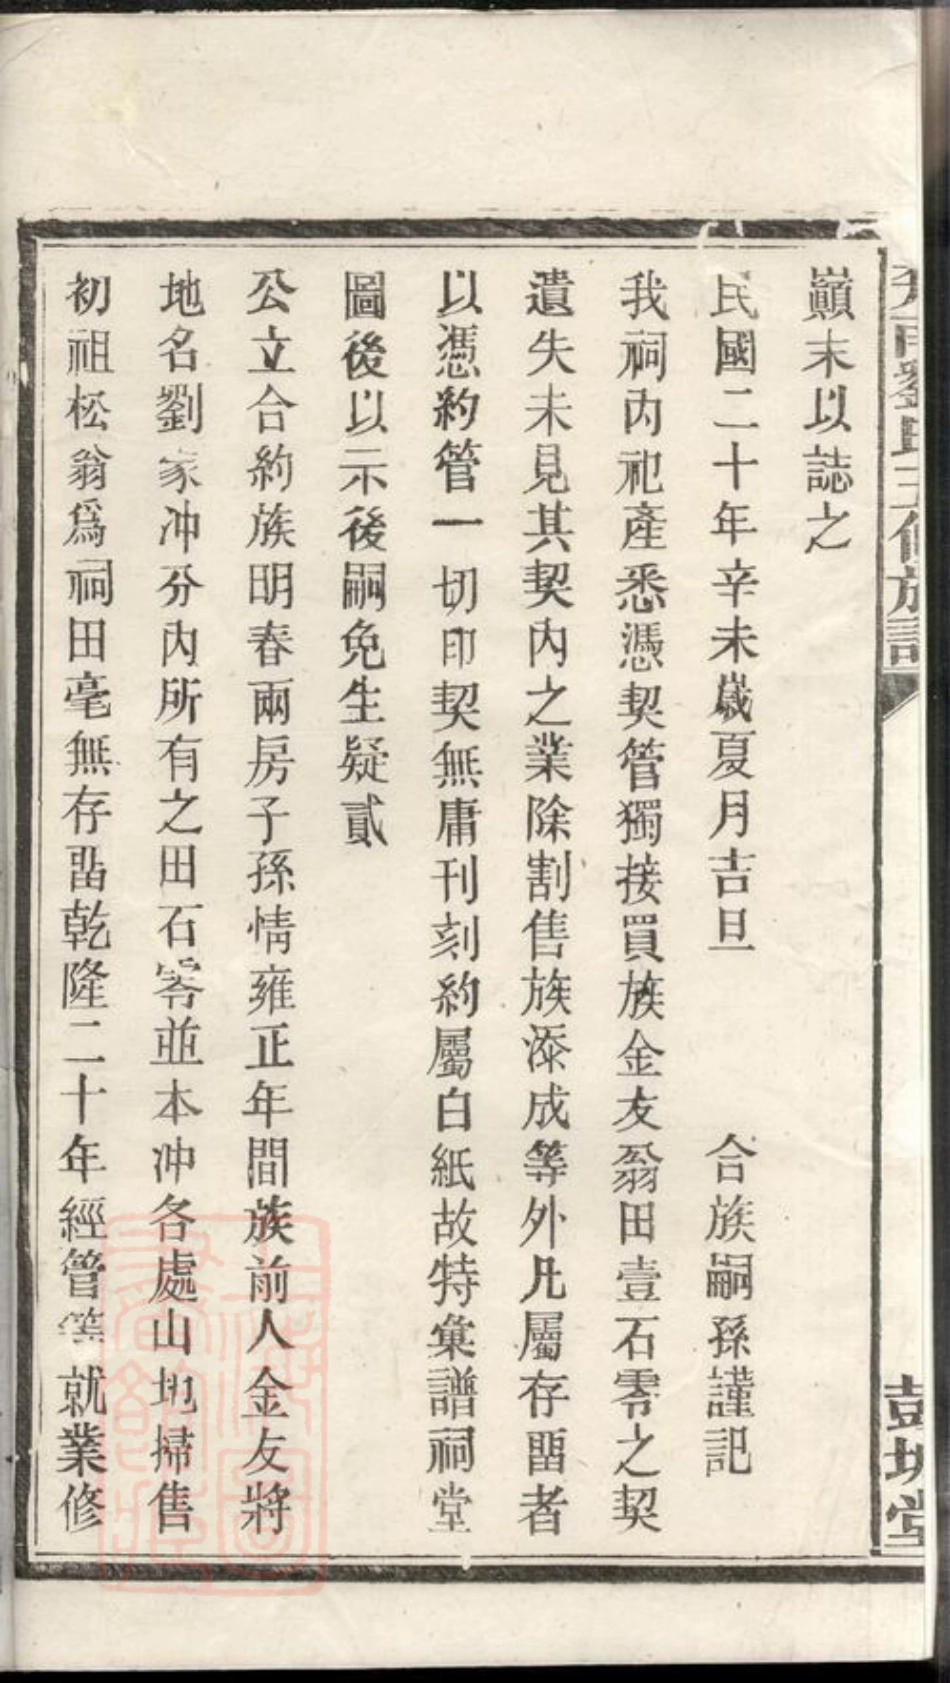 巔末以誌之
民國二十年辛未歲夏月吉旦　合族嗣孫謹記
我祠內祀產悉憑契管獨接買族金友翁田壹石零之契
遺失未見其契內之業除割售族添成等外凡屬存畱者
以憑約管一切印契無庸刊刻約屬白紙故特彙譜祠堂
圖後以示後嗣免生疑貳
公立合約族明春兩房子孫情雍正年間族前人金友將
地名劉家冲分內所有之田石零並本冲各處山地掃售
初祖松翁爲祠田毫無存畱乾隆二十年經管等就業修
劉氏三修族譜
彭城堂